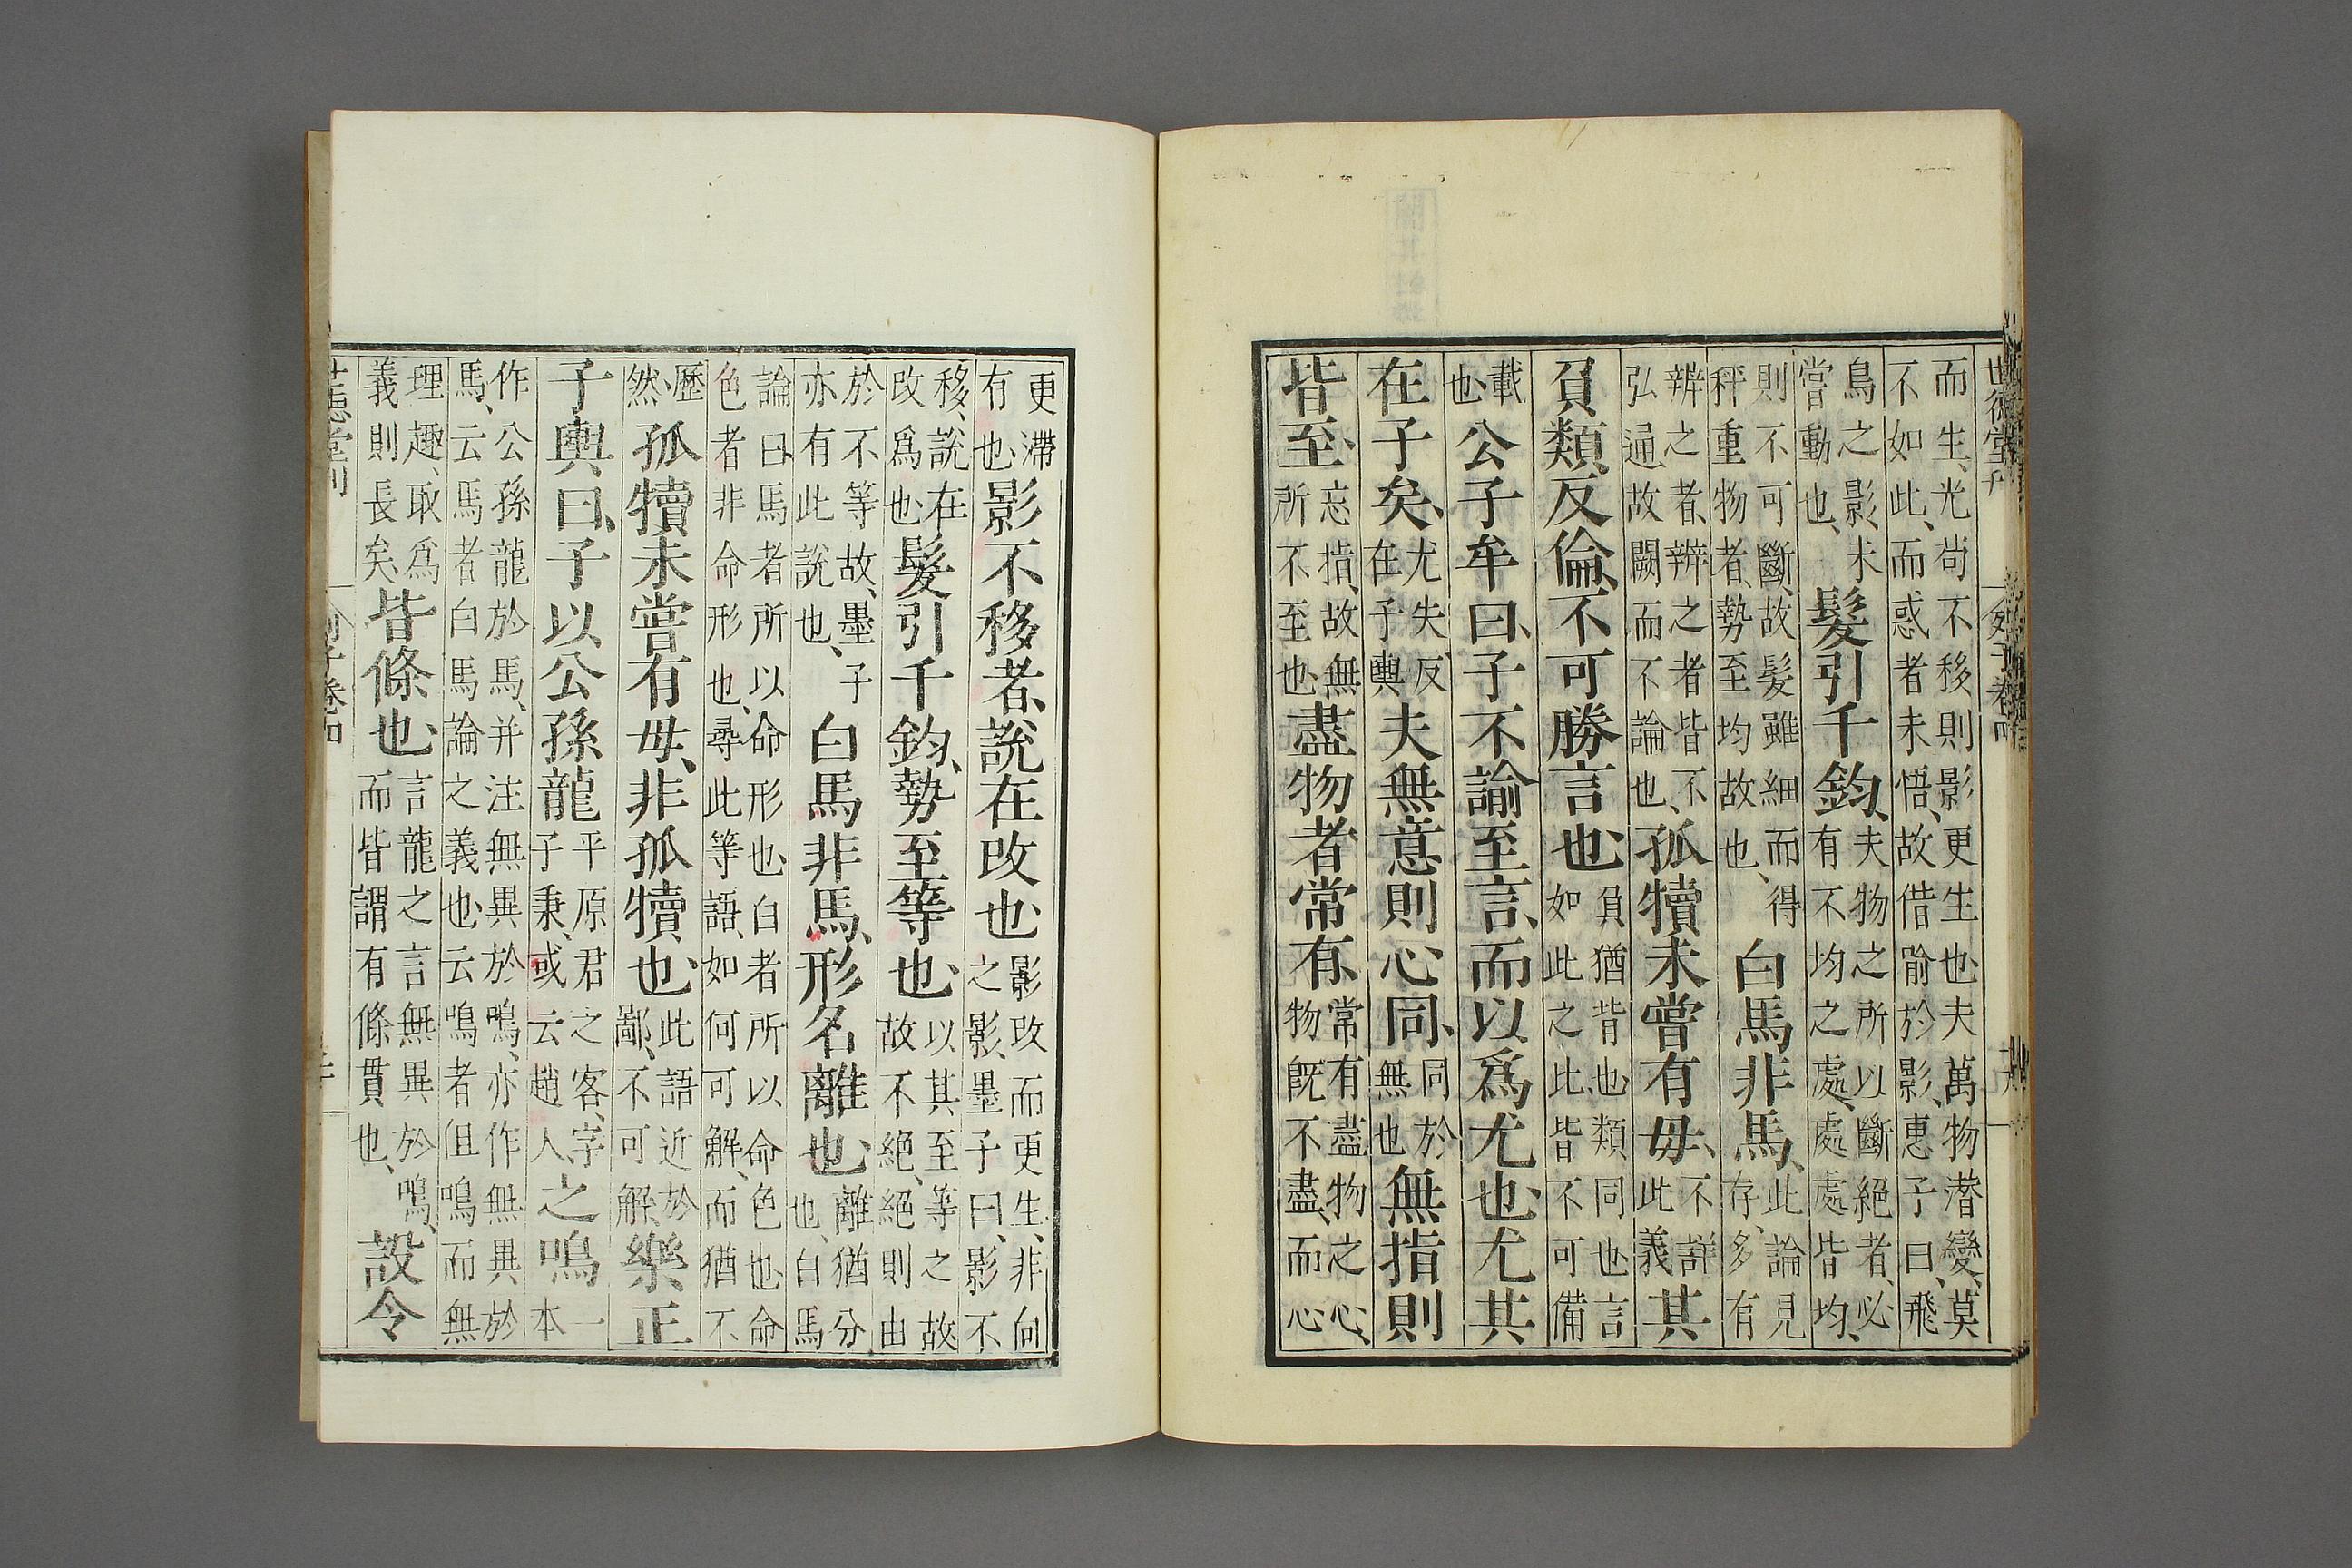 世德堂刊 列子卷四 十九
而生、光尚不移則影更生也夫萬物潛變、莫
不如此、而惑者未悟、故借喻於影、惠子曰、飛
鳥之影、未嘗動也、髮引千鈞、夫物之所以斷絕者、必有不均之處、處處皆均、
則不可斷、故髮雖細而得秤重物者、勢至均故也、白馬非馬、此論見存、多有
辨之者、辨之者皆不弘通、故闕而不論也、孤犢未嘗有母、不詳此義其
負類、反倫、不可勝言也負猶背也類同也言如此之比皆不可備
載也公子牟曰、子不諭至言、而以爲尤也尤其
在子矣、尤失反在子輿夫無意則心同、同於無也無指則
皆至、忘指、故無所不至也盡物者常有、常有盡物之心、物既不盡、而心
更滯有也影不移者、說在改也影改而更生、非向之影、墨子曰、影不
移、說在改爲也髮引千鈞、勢至等也以其至等之故故不絕、絕則由
於不等故、墨子亦有此說也、白馬非馬、形名離也離猶分也、白馬
論曰馬者所以命形也白者所以命色也命
色者非命形也、尋此等語、如何可解、而猶不
歷然孤犢未嘗有母、非孤犢也此語近於鄙、不可解、樂正
子輿曰、子以公孫龍平原君之客、字子秉、或云趙人之鳴一本
作公孫龍於馬、并注無異於鳴、亦作無異於
馬、云馬者白馬論之義也云鳴者伹鳴而無
理趣、取爲義則長矣皆條也言龍之言無異於鳴、而皆謂有條貫也、設令
世德堂刊 列子卷四